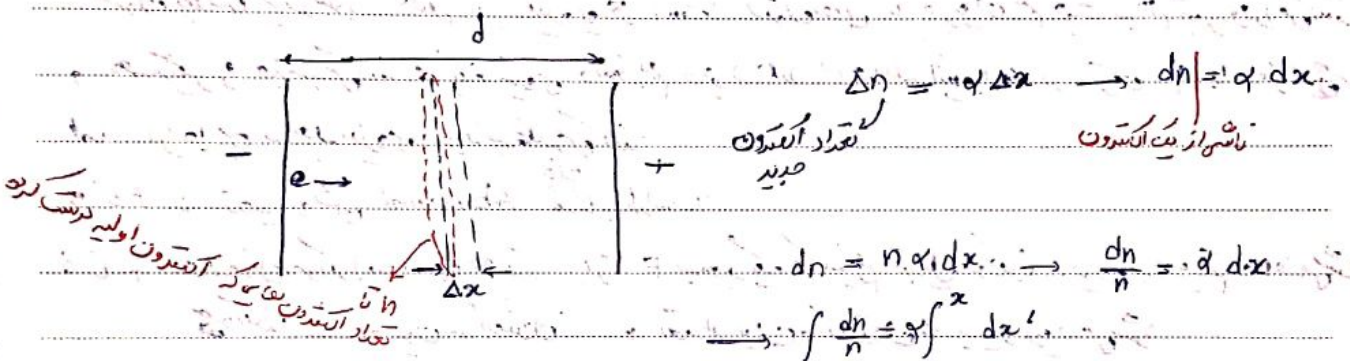 d
Δn = α Δx → dn | = α dx
تعداد الکترون جدید
ناشی از یک الکترون
- e → +
n تا
تعداد الکترون هایی که الکترون اولیه درست کرده
Δx
dn = n α dx → dn/n = α dx
→ ∫ dn/n = α ∫^x dx'